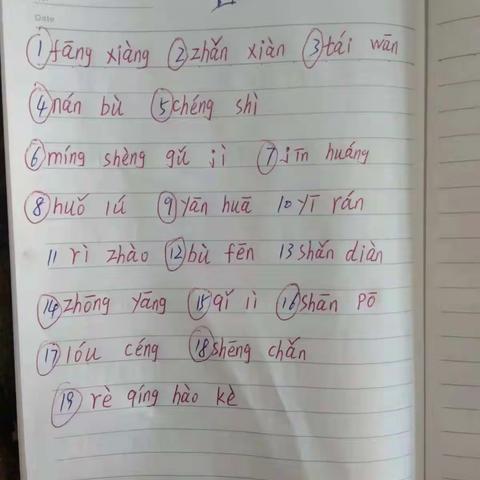 Date
①fāng xiàng ②zhǎn xiàn ③tái wān
④nán bù ⑤chéng shì
⑥míng shèng gǔ jì ⑦jīn huáng
⑧huǒ lú ⑨yān huā 10 yī rán
11 rì zhào ⑫bù fēn 13 shǎn diàn
⑭zhōng yāng ⑮qǐ lì ⑯shān pō
⑰lóu céng ⑱shēng chǎn
⑲rè qíng hào kè